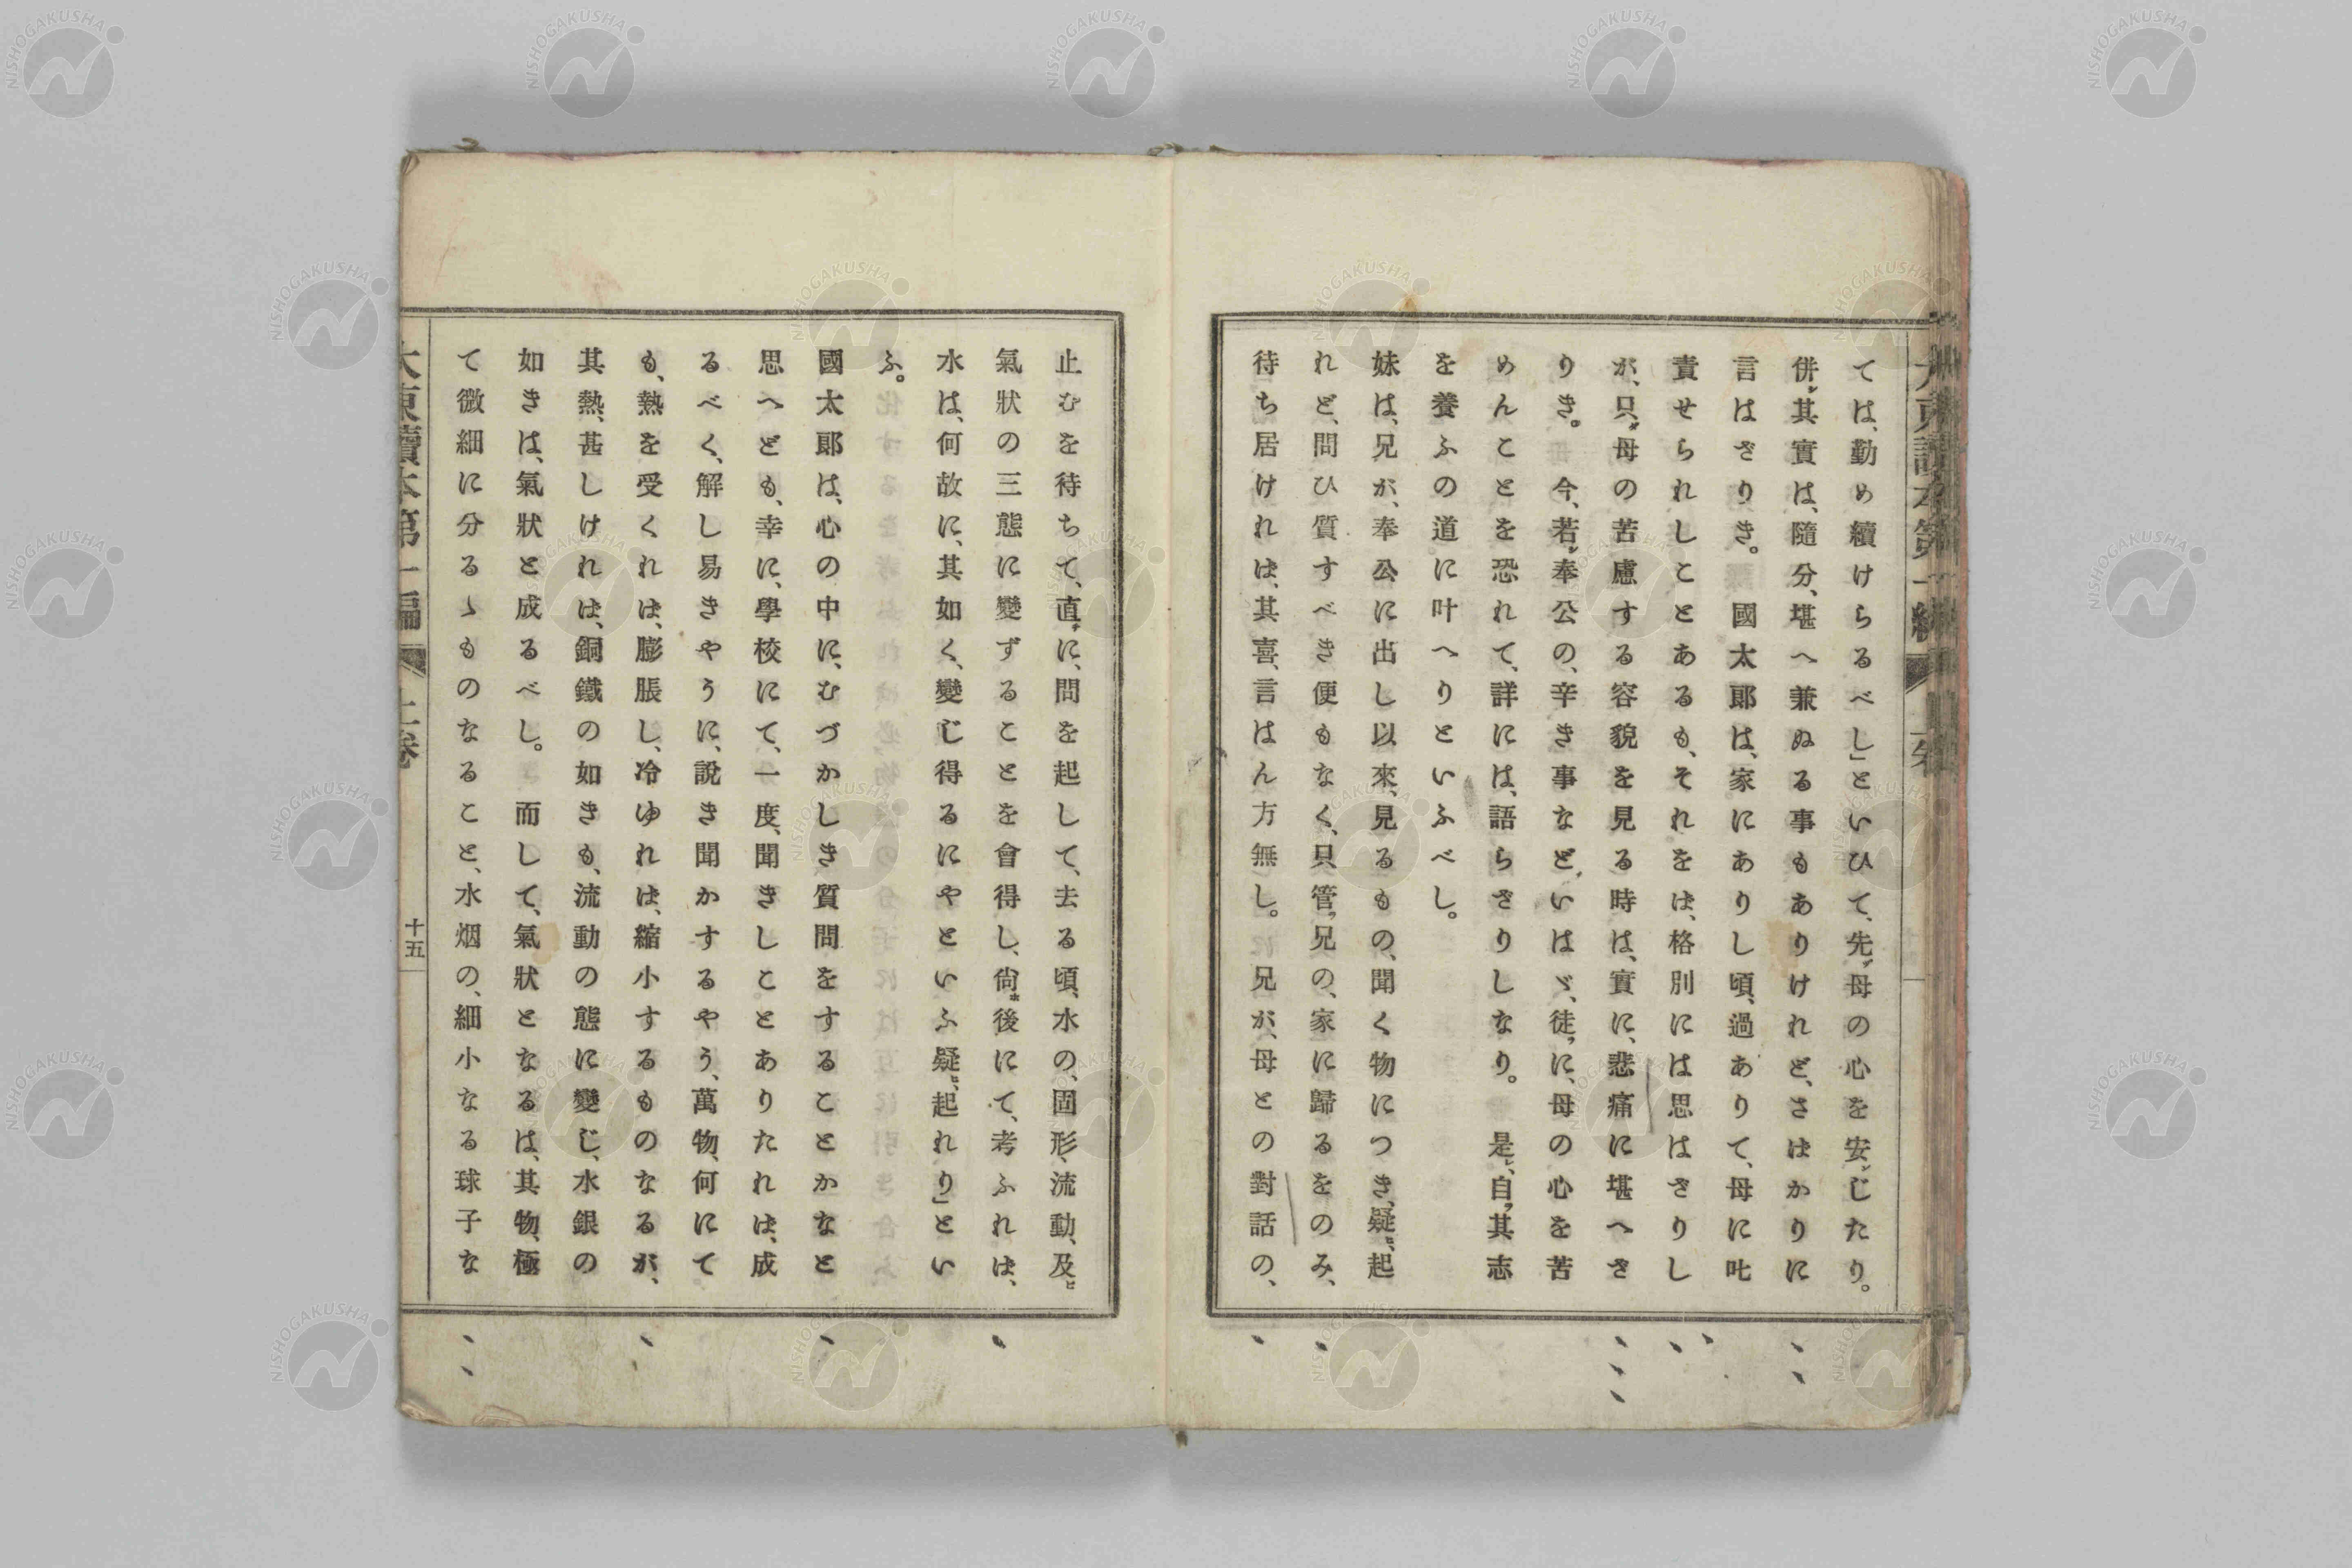 ては、勤め續けらるべし」といひて、先ヅ母の心を安ンじたり。
併シ其實は、隨分、堪へ兼ぬる事もありけれど、さはかりに
言はざりき。　國太郎は、家にありし頃、過ありて、母に叱
責せられしことあるも、それをは、格別には思はさりし
が、只ダ母の苦慮する容貌を見る時は、實に、悲痛に堪へさ
りき。　今、若シ奉公の、辛き事など、いはゞ、徒ラに、母の心を苦
めんことを恐れて、詳には、語らざりしなり。　是レ、自ラ其志
を養ふの道に叶へりといふべし。
妹は、兄が、奉公に出し以來、見るもの、聞く物につき、疑ヒ、起
れど、問ひ質すべき便もなく、只管ラ兄の、家に歸るをのみ、
待ち居けれは、其喜、言はん方無し。　兄が、母との對話の、
止むを待ちて、直ヂに、問を起して、去る頃、水の、固形、流動、及ビ
氣狀の三態に變ずることを會得し、尙ホ後にて、考ふれは、
水は、何故に、其如く、變じ得るにやといふ疑ヒ、起れり」とい
ふ。
國太郎は、心の中に、むづかしき質問をすることかなと
思へども、幸に、學校にて、一度、聞きしことありたれは、成
るべく、解し易きやうに、說き聞かするやう、萬物、何にて
も、熱を受くれは、膨脹し、冷ゆれは、縮小するものなるが、
其熱、甚しけれは、銅鐵の如きも、流動の態に變じ、水銀の
如きは、氣狀と成るべし。　而して、氣狀となるは、其物、極
て微細に分るゝものなること、水烟の、細小なる球子な
十五